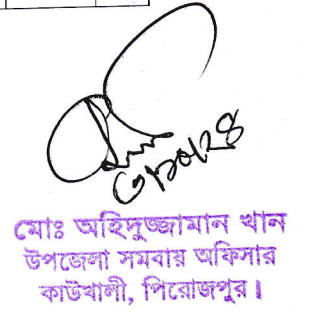 মোঃ অহিদুজ্জামান খান
উপজেলা সমবায় অফিসার
কাউখালী, পিরোজপুর।